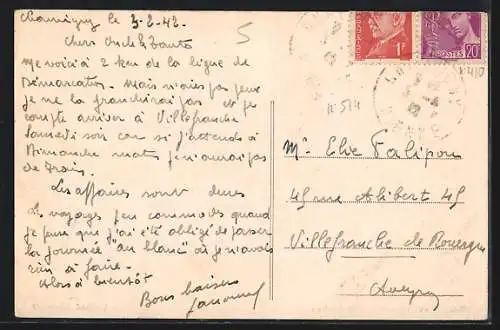 Chauvigny le 3-2-42
5
Chers Oncle & Tante
Me voici à 2 km de la ligne de
Démarcation. Mais n'aies pas peur
je ne la franchirai pas et je
compte arriver à Villefranche
Samedi soir car si j'attends à
Dimanche matin je n'aurai pas
de Train.
Les affaires sont dures
et voyages peu commodes quand
je pense que j'ai été obligé de passer
la journée "au blanc" où je n'avais
rien à faire.
Alors à bientôt
Bons baisers
1F
POSTES 20c
N° 514
N° 410
Mr Elie Falipou
45 rue Alibert 45
Villefranche de Rouergue
Aveyron